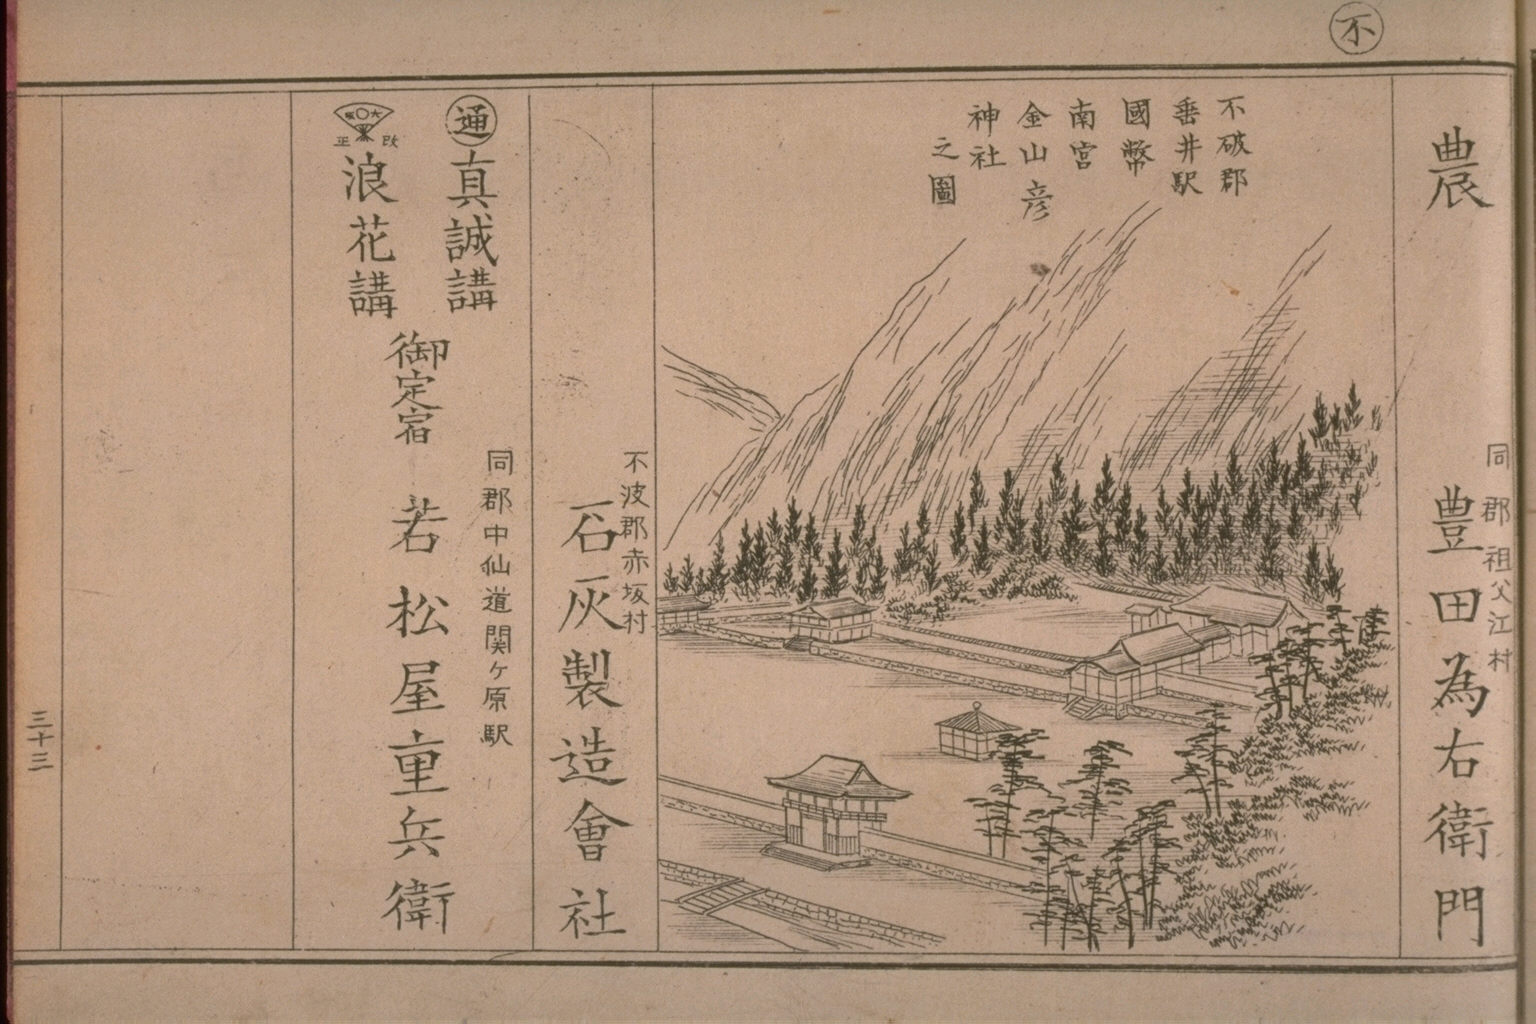 不
農
同郡祖父江村
豊田為右衛門
不破郡
垂井駅
國幣
南宮
金山彦
神社
之圖
不波郡赤坂村
石灰製造會社
通 真誠講
改正 浪花講
御定宿
同郡中仙道関ヶ原駅
若松屋重兵衛
三十三